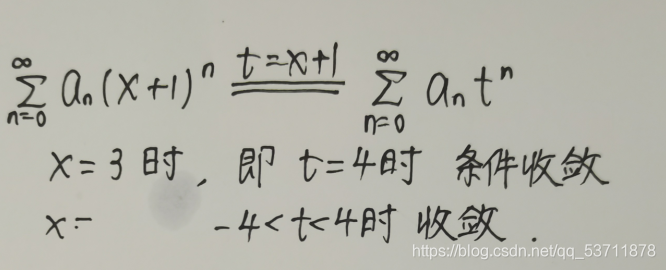 ∞∑n=0 aₙ(x+1)ⁿ t=x+1 ∞∑n=0 aₙtⁿ
x=3时, 即 t=4时 条件收敛
x= -4<t<4时 收敛.
https://blog.csdn.net/qq_53711878